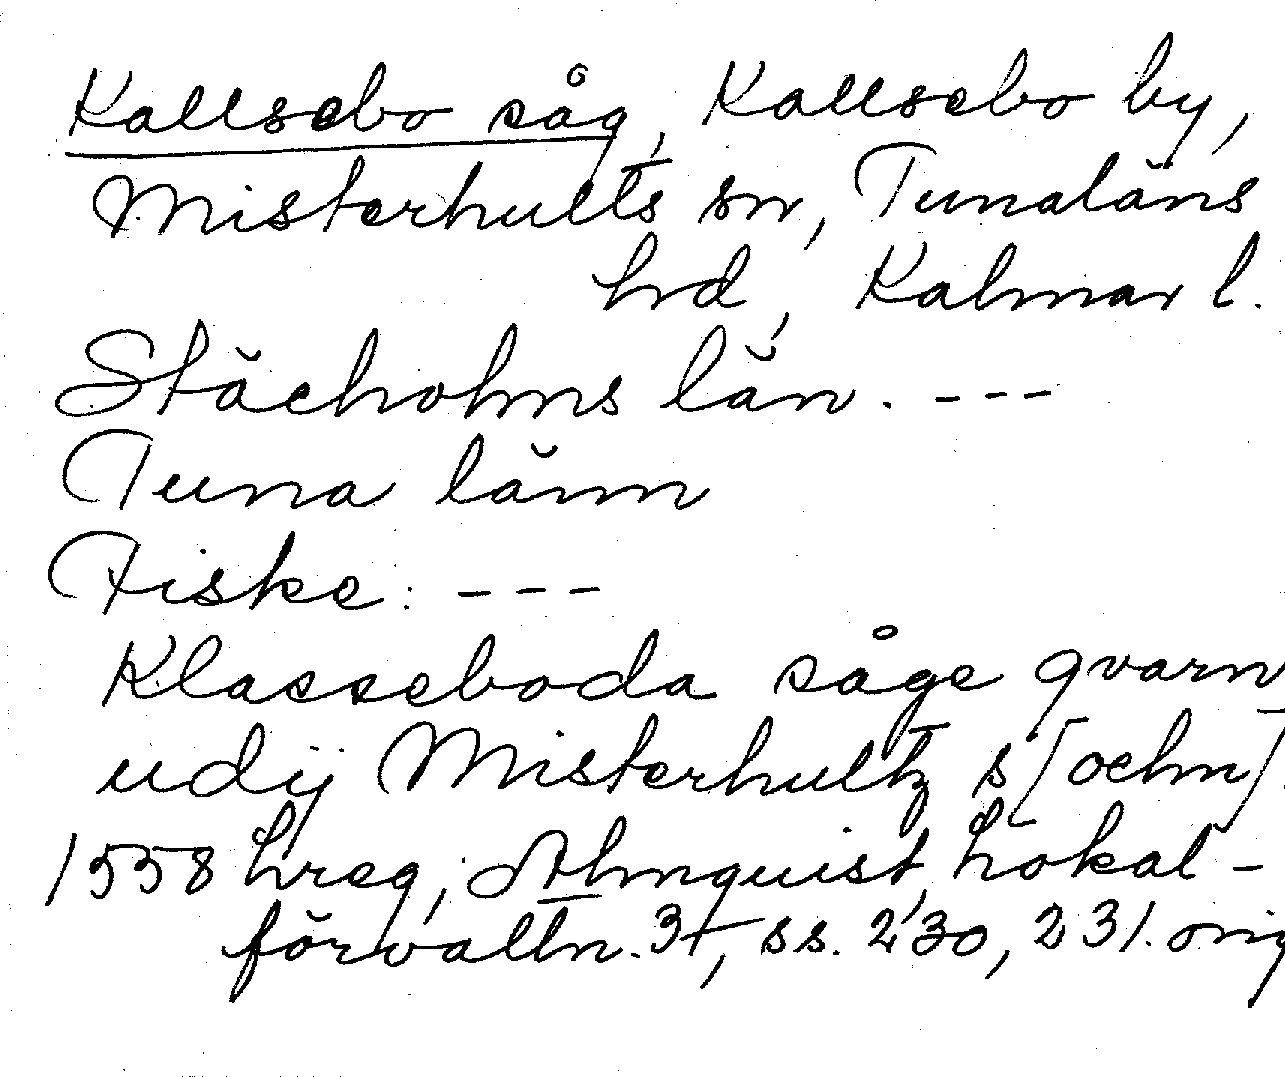 Kallsebo såg, Kallsebo by,
Misterhults sn, Tunaläns
hd, Kalmar l.
Stächolms län. ---
Tuna länn
Fiske: ---
Klasseboda såge qvarn
udij Misterhultz s[ochn].
1558 hreg, Almquist, Lokal-
förvaltn. 3t, ss. 230, 231. orig